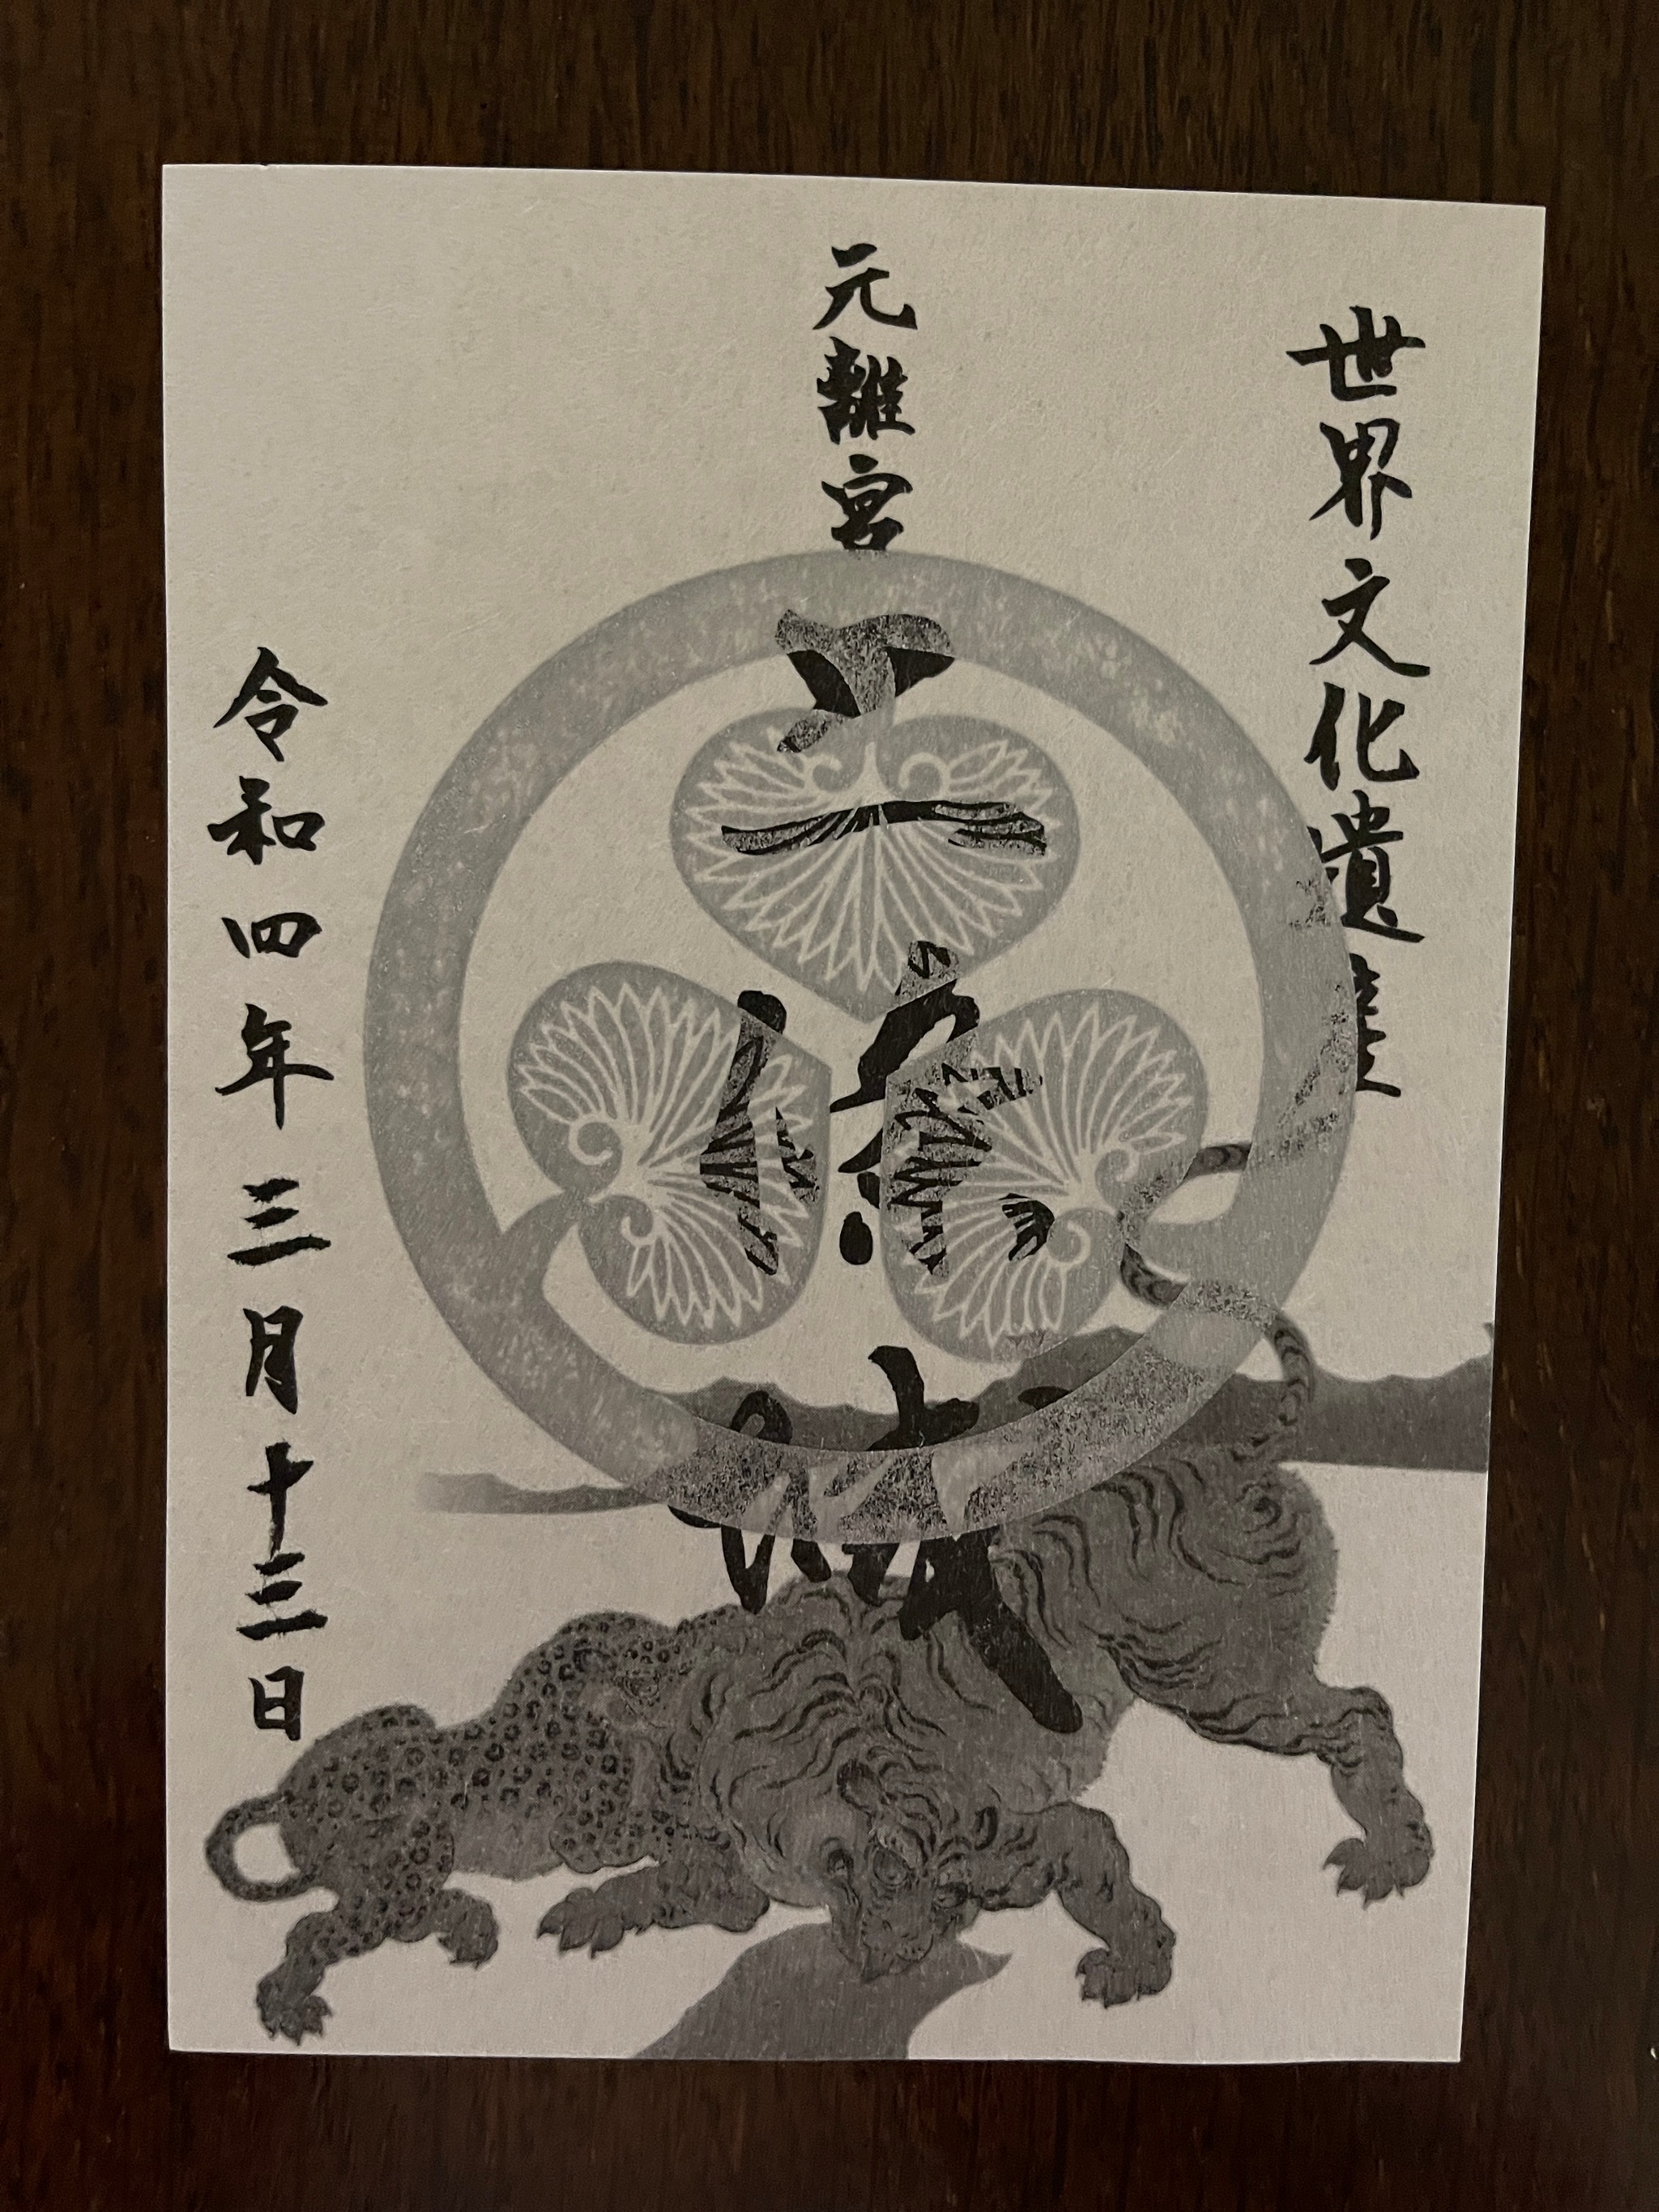 世界文化遺産
元離宮
二條城
令和四年三月十三日